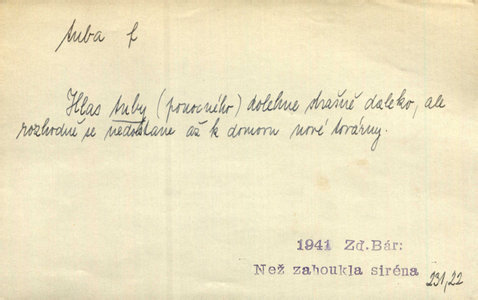 tuba f
Hlas tuby (ponocného) dolehne strašně daleko, ale
rozhodně se nedostane až k domovu nové továrny.
1941 Zd.Bár:
Než zahoukla siréna 231,22